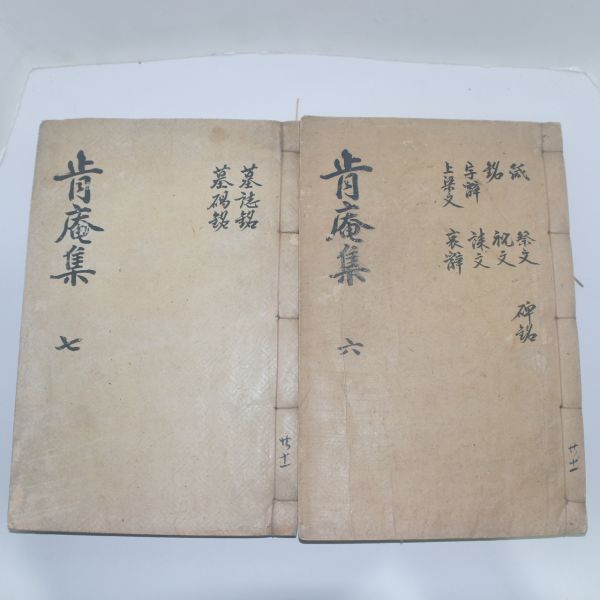 肯庵集
六
箴
銘
字辭
上梁文
祭文
祝文
誄文
哀辭
碑銘
共十一
肯庵集
七
墓誌銘
墓碣銘
共十一